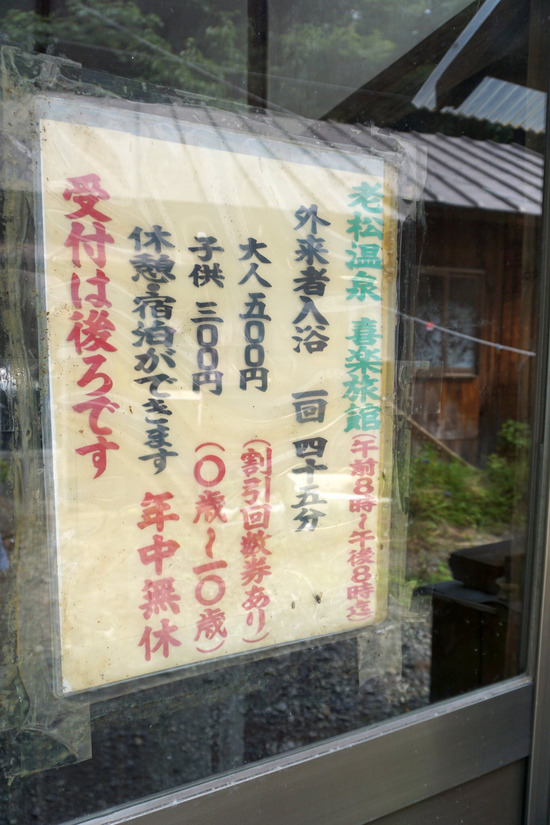 老松温泉 喜楽旅館(午前8時~午後8時迄)
外来者入浴 一回 四十五分
大人 五〇〇円(割引回数券あり)
子供 三〇〇円(〇歳~一〇歳)
休憩・宿泊ができます 年中無休
受付は後ろです